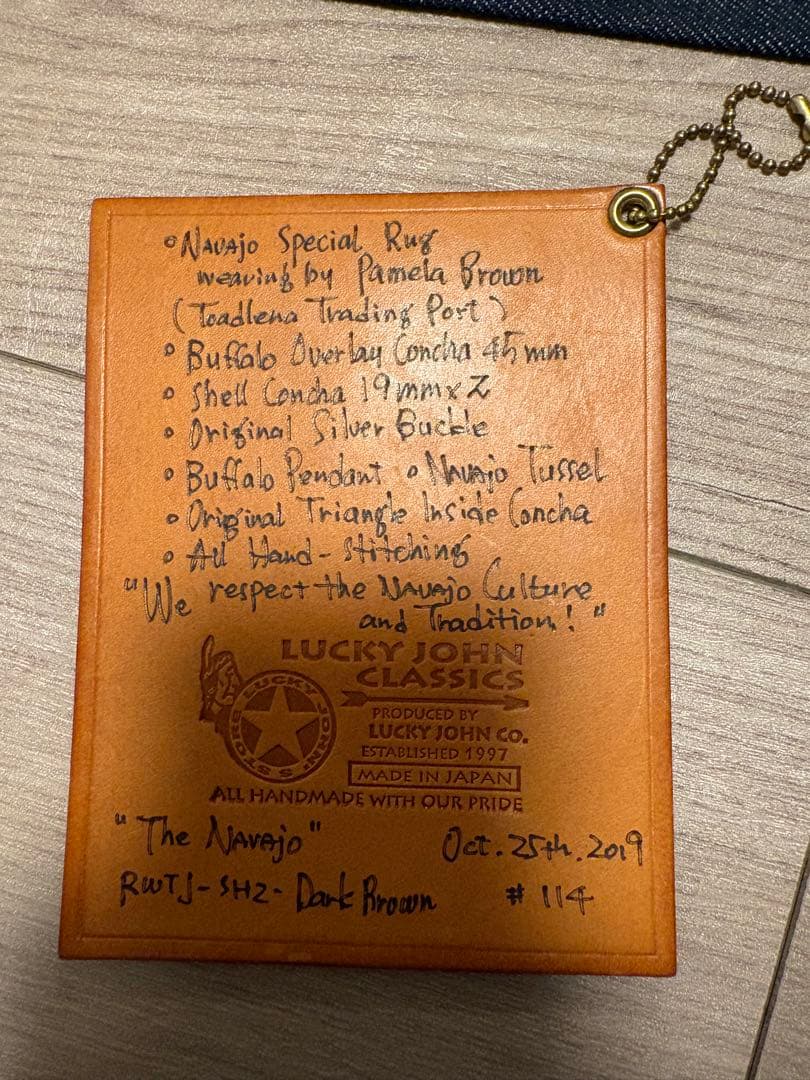 ° Navajo Special Rug
weaving by Pamela Brown
(Toadlena Trading Port)
° Buffalo Overlay Concha 45mm
° Shell Concha 19mm x 2
° Original Silver Buckle
° Buffalo Pendant ° Navajo Tussel
° Original Triangle Inside Concha
° All Hand-Stitching
"We respect the Navajo Culture
and Tradition! "
LUCKY JOHN
CLASSICS
LUCKY JOHN'S STORE
PRODUCED BY
LUCKY JOHN CO.
ESTABLISHED 1997
MADE IN JAPAN
ALL HANDMADE WITH OUR PRIDE
"The Navajo" Oct. 25th. 2019
RWTJ-SH2-Dark Brown # 114